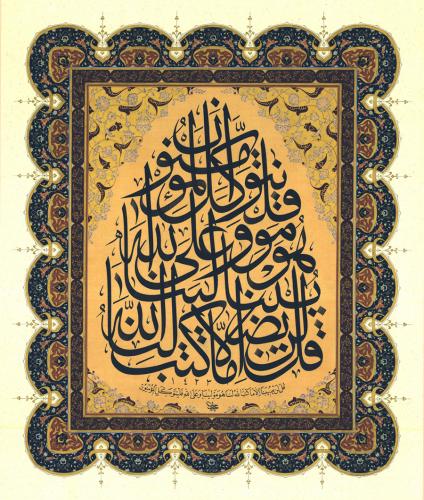 قل لن يصيبنا إلا ما كتب الله لنا هو مولانا وعلى الله فليتوكل المؤمنون
قل لن يصيبنا الا ما كتب الله لنا هو مولينا وعلى الله فليتوكل المؤمنون